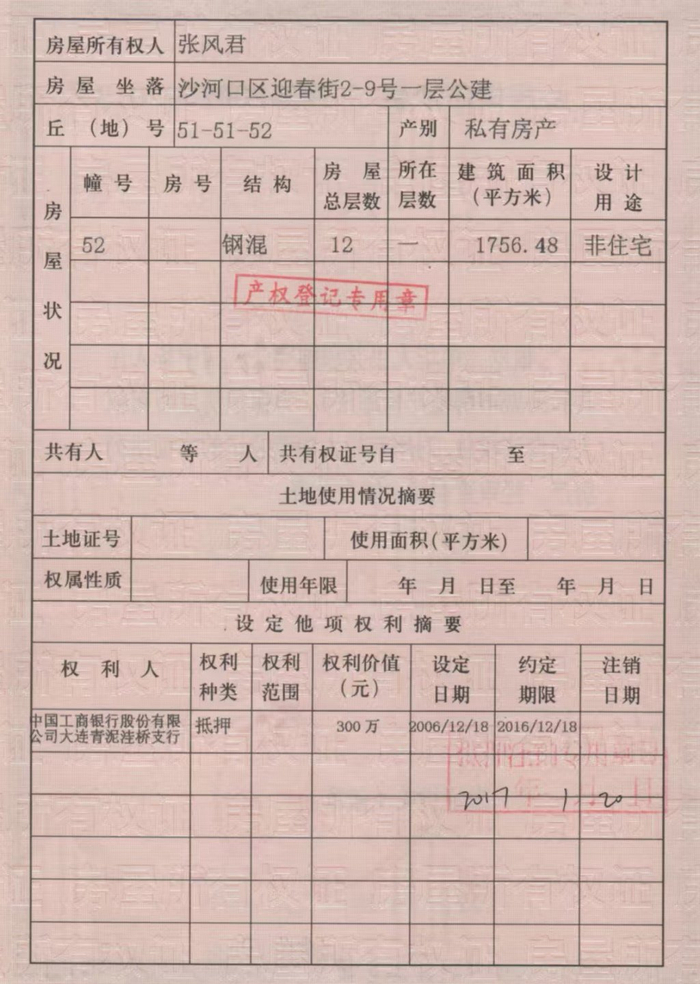 房屋所有权人 张风君
房屋坐落 沙河口区迎春街2-9号一层公建
丘（地）号 51-51-52 产别 私有房产
房屋状况
幢号 房号 结构 房屋总层数 所在层数 建筑面积（平方米） 设计用途
52 钢混 12 一 1756.48 非住宅
产权登记专用章
共有人 等 人 共有权证号自 至
土地使用情况摘要
土地证号 使用面积(平方米)
权属性质 使用年限 年 月 日至 年 月 日
设定他项权利摘要
权利人 权利种类 权利范围 权利价值（元） 设定日期 约定期限 注销日期
中国工商银行股份有限 抵押 300万 2006/12/18 2016/12/18
公司大连青泥洼桥支行
抵押注销专用章
2017年 1月 20日